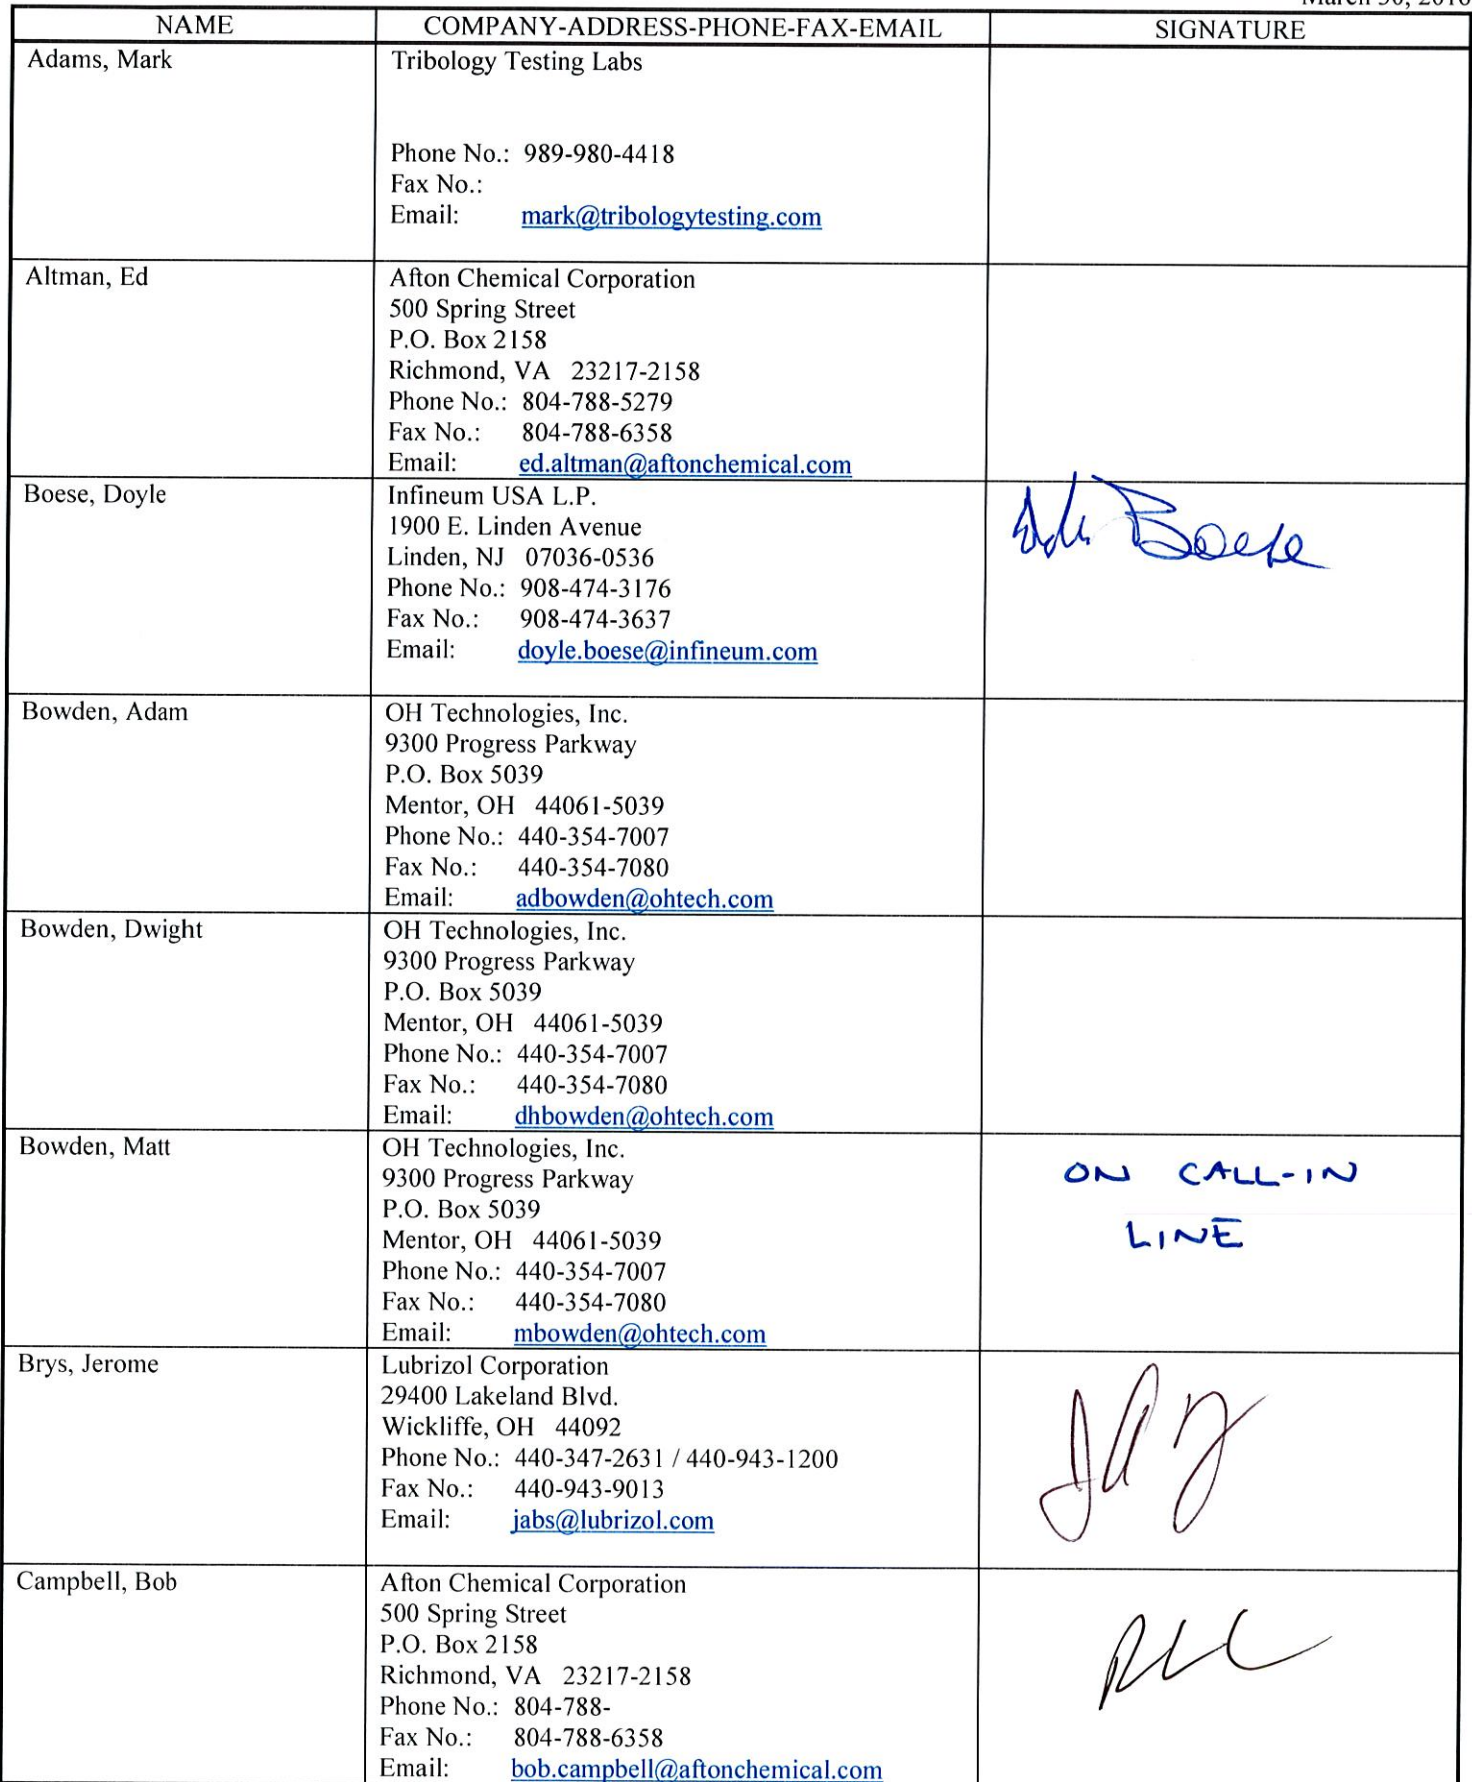 NAME COMPANY-ADDRESS-PHONE-FAX-EMAIL SIGNATURE
Adams, Mark Tribology Testing Labs
Phone No.: 989-980-4418
Fax No.:
Email: mark@tribologytesting.com
Altman, Ed Afton Chemical Corporation
500 Spring Street
P.O. Box 2158
Richmond, VA 23217-2158
Phone No.: 804-788-5279
Fax No.: 804-788-6358
Email: ed.altman@aftonchemical.com
Boese, Doyle Infineum USA L.P.
1900 E. Linden Avenue
Boese
Linden, NJ 07036-0536
Phone No.: 908-474-3176
Fax No.: 908-474-3637
Email: doyle.boese@infineum.com
Bowden, Adam OH Technologies, Inc.
9300 Progress Parkway
P.O. Box 5039
Mentor, OH 44061-5039
Phone No.: 440-354-7007
Fax No.: 440-354-7080
Email: adbowden@ohtech.com
Bowden, Dwight OH Technologies, Inc.
9300 Progress Parkway
P.O. Box 5039
Mentor, OH 44061-5039
Phone No.: 440-354-7007
Fax No.: 440-354-7080
Email: dhbowden@ohtech.com
Bowden, Matt OH Technologies, Inc.
9300 Progress Parkway ON CALL-IN
P.O. Box 5039
Mentor, OH 44061-5039 LINE
Phone No.: 440-354-7007
Fax No.: 440-354-7080
Email: mbowden@ohtech.com
Brys, Jerome Lubrizol Corporation
29400 Lakeland Blvd.
Wickliffe, OH 44092
Phone No.: 440-347-2631 / 440-943-1200
Fax No.: 440-943-9013
Email: jabs@lubrizol.com
Campbell, Bob Afton Chemical Corporation
500 Spring Street
P.O. Box 2158
Richmond, VA 23217-2158
Phone No.: 804-788-
Fax No.: 804-788-6358
Email: bob.campbell@aftonchemical.com